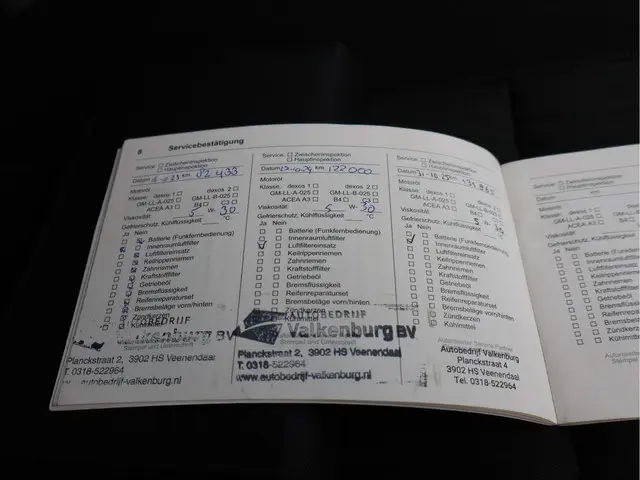 8 Servicebestätigung
Service: Zwischeninspektion
Hauptinspektion
Datum km
Motoröl:
Klasse: dexos 1 dexos 2
GM-LL-A-025 GM-LL-B-025
ACEA A3 B4 C3
Viskosität: 5 W- 30
Gefrierschutz, Kühlflüssigkeit °C
Ja Nein
Batterie (Funkfernbedienung)
Innenraumluftfilter
Luftfiltereinsatz
Keilrippenriemen
Zahnriemen
Kraftstofffilter
Getriebeöl
Bremsflüssigkeit
Reifenreparaturset
Bremsbeläge vorn/hinten
Zündkerzen
Kühlmittel
Valkenburg BV
Planckstraat 2, 3902 HS Veenendaal
T. 0318-522964
www.autobedrijf-valkenburg.nl
Service: Zwischeninspektion
Hauptinspektion
Datum km 122000
Motoröl:
Klasse: dexos 1 dexos 2
GM-LL-A-025 GM-LL-B-025
ACEA A3 B4 C3
Viskosität: 5 W- 30
Gefrierschutz, Kühlflüssigkeit °C
Ja Nein
Batterie (Funkfernbedienung)
Innenraumluftfilter
Luftfiltereinsatz
Keilrippenriemen
Zahnriemen
Kraftstofffilter
Getriebeöl
Bremsflüssigkeit
Reifenreparaturset
Bremsbeläge vorn/hinten
Zündkerzen
Kühlmittel
AUTOBEDRIJF
Valkenburg BV
Planckstraat 2, 3902 HS Veenendaal
T. 0318-522964
www.autobedrijf-valkenburg.nl
Service: Zwischeninspektion
Hauptinspektion
Datum km
Motoröl:
Klasse: dexos 1 dexos 2
GM-LL-A-025 GM-LL-B-025
ACEA A3 B4 C3
Viskosität: 5 W- 30
Gefrierschutz, Kühlflüssigkeit °C
Ja Nein
Batterie (Funkfernbedienung)
Innenraumluftfilter
Luftfiltereinsatz
Keilrippenriemen
Zahnriemen
Kraftstofffilter
Getriebeöl
Bremsflüssigkeit
Reifenreparaturset
Bremsbeläge vorn/hinten
Zündkerzen
Kühlmittel
Autobedrijf Valkenburg
Planckstraat 4
3902 HS Veenendaal
Tel. 0318-522964
Service: Zwischeninspektion
Hauptinspektion
Datum km
Motoröl:
Klasse: dexos 1
GM-LL-A-025
ACEA A3
Viskosität:
Gefrierschutz, Kühlflüssigkeit
Ja Nein